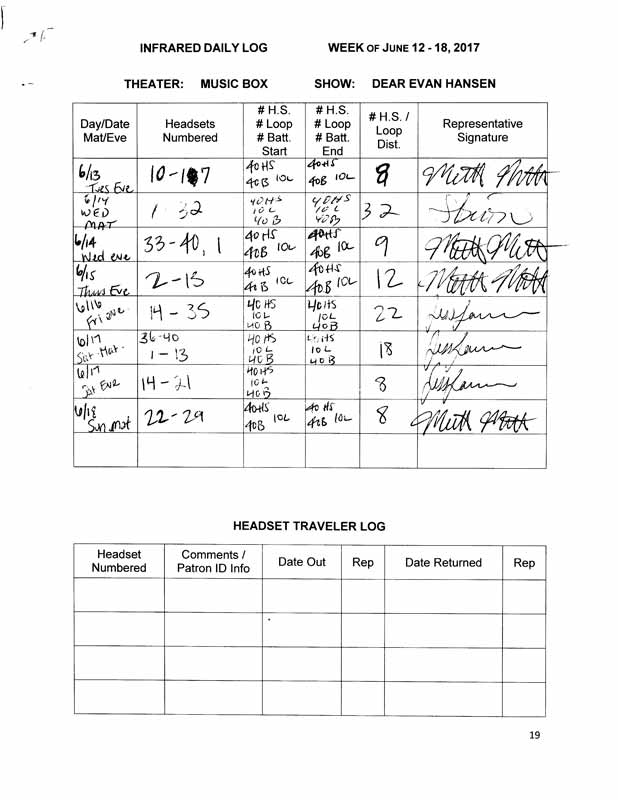 INFRARED DAILY LOG WEEK OF JUNE 12 - 18, 2017
THEATER: MUSIC BOX SHOW: DEAR EVAN HANSEN
Day/Date Mat/Eve Headsets Numbered # H.S. # Loop # Batt. Start # H.S. # Loop # Batt. End # H.S. / Loop Dist. Representative Signature
6/13 Tues Eve 10-17 40HS 40B 10L 40HS 40B 10L 8
6/14 WED MAT 1 32 40HS 10L 40B 40HS 10L 40B 32
6/14 Wed eve 33-40, 1 40HS 40B 10L 40HS 40B 10L 9
6/15 Thurs Eve 2-13 40HS 40B 10L 40HS 40B 10L 12
6/16 Fri eve 14-35 40HS 10L 40B 40HS 10L 40B 22
6/17 Sat-Mat. 36-40 1-13 40HS 10L 40B 40HS 10L 40B 18
6/17 Sat Eve 14-21 40HS 10L 40B 8
6/18 Sun mat 22-29 40HS 40B 10L 40HS 40B 10L 8
HEADSET TRAVELER LOG
Headset Numbered Comments / Patron ID Info Date Out Rep Date Returned Rep
19